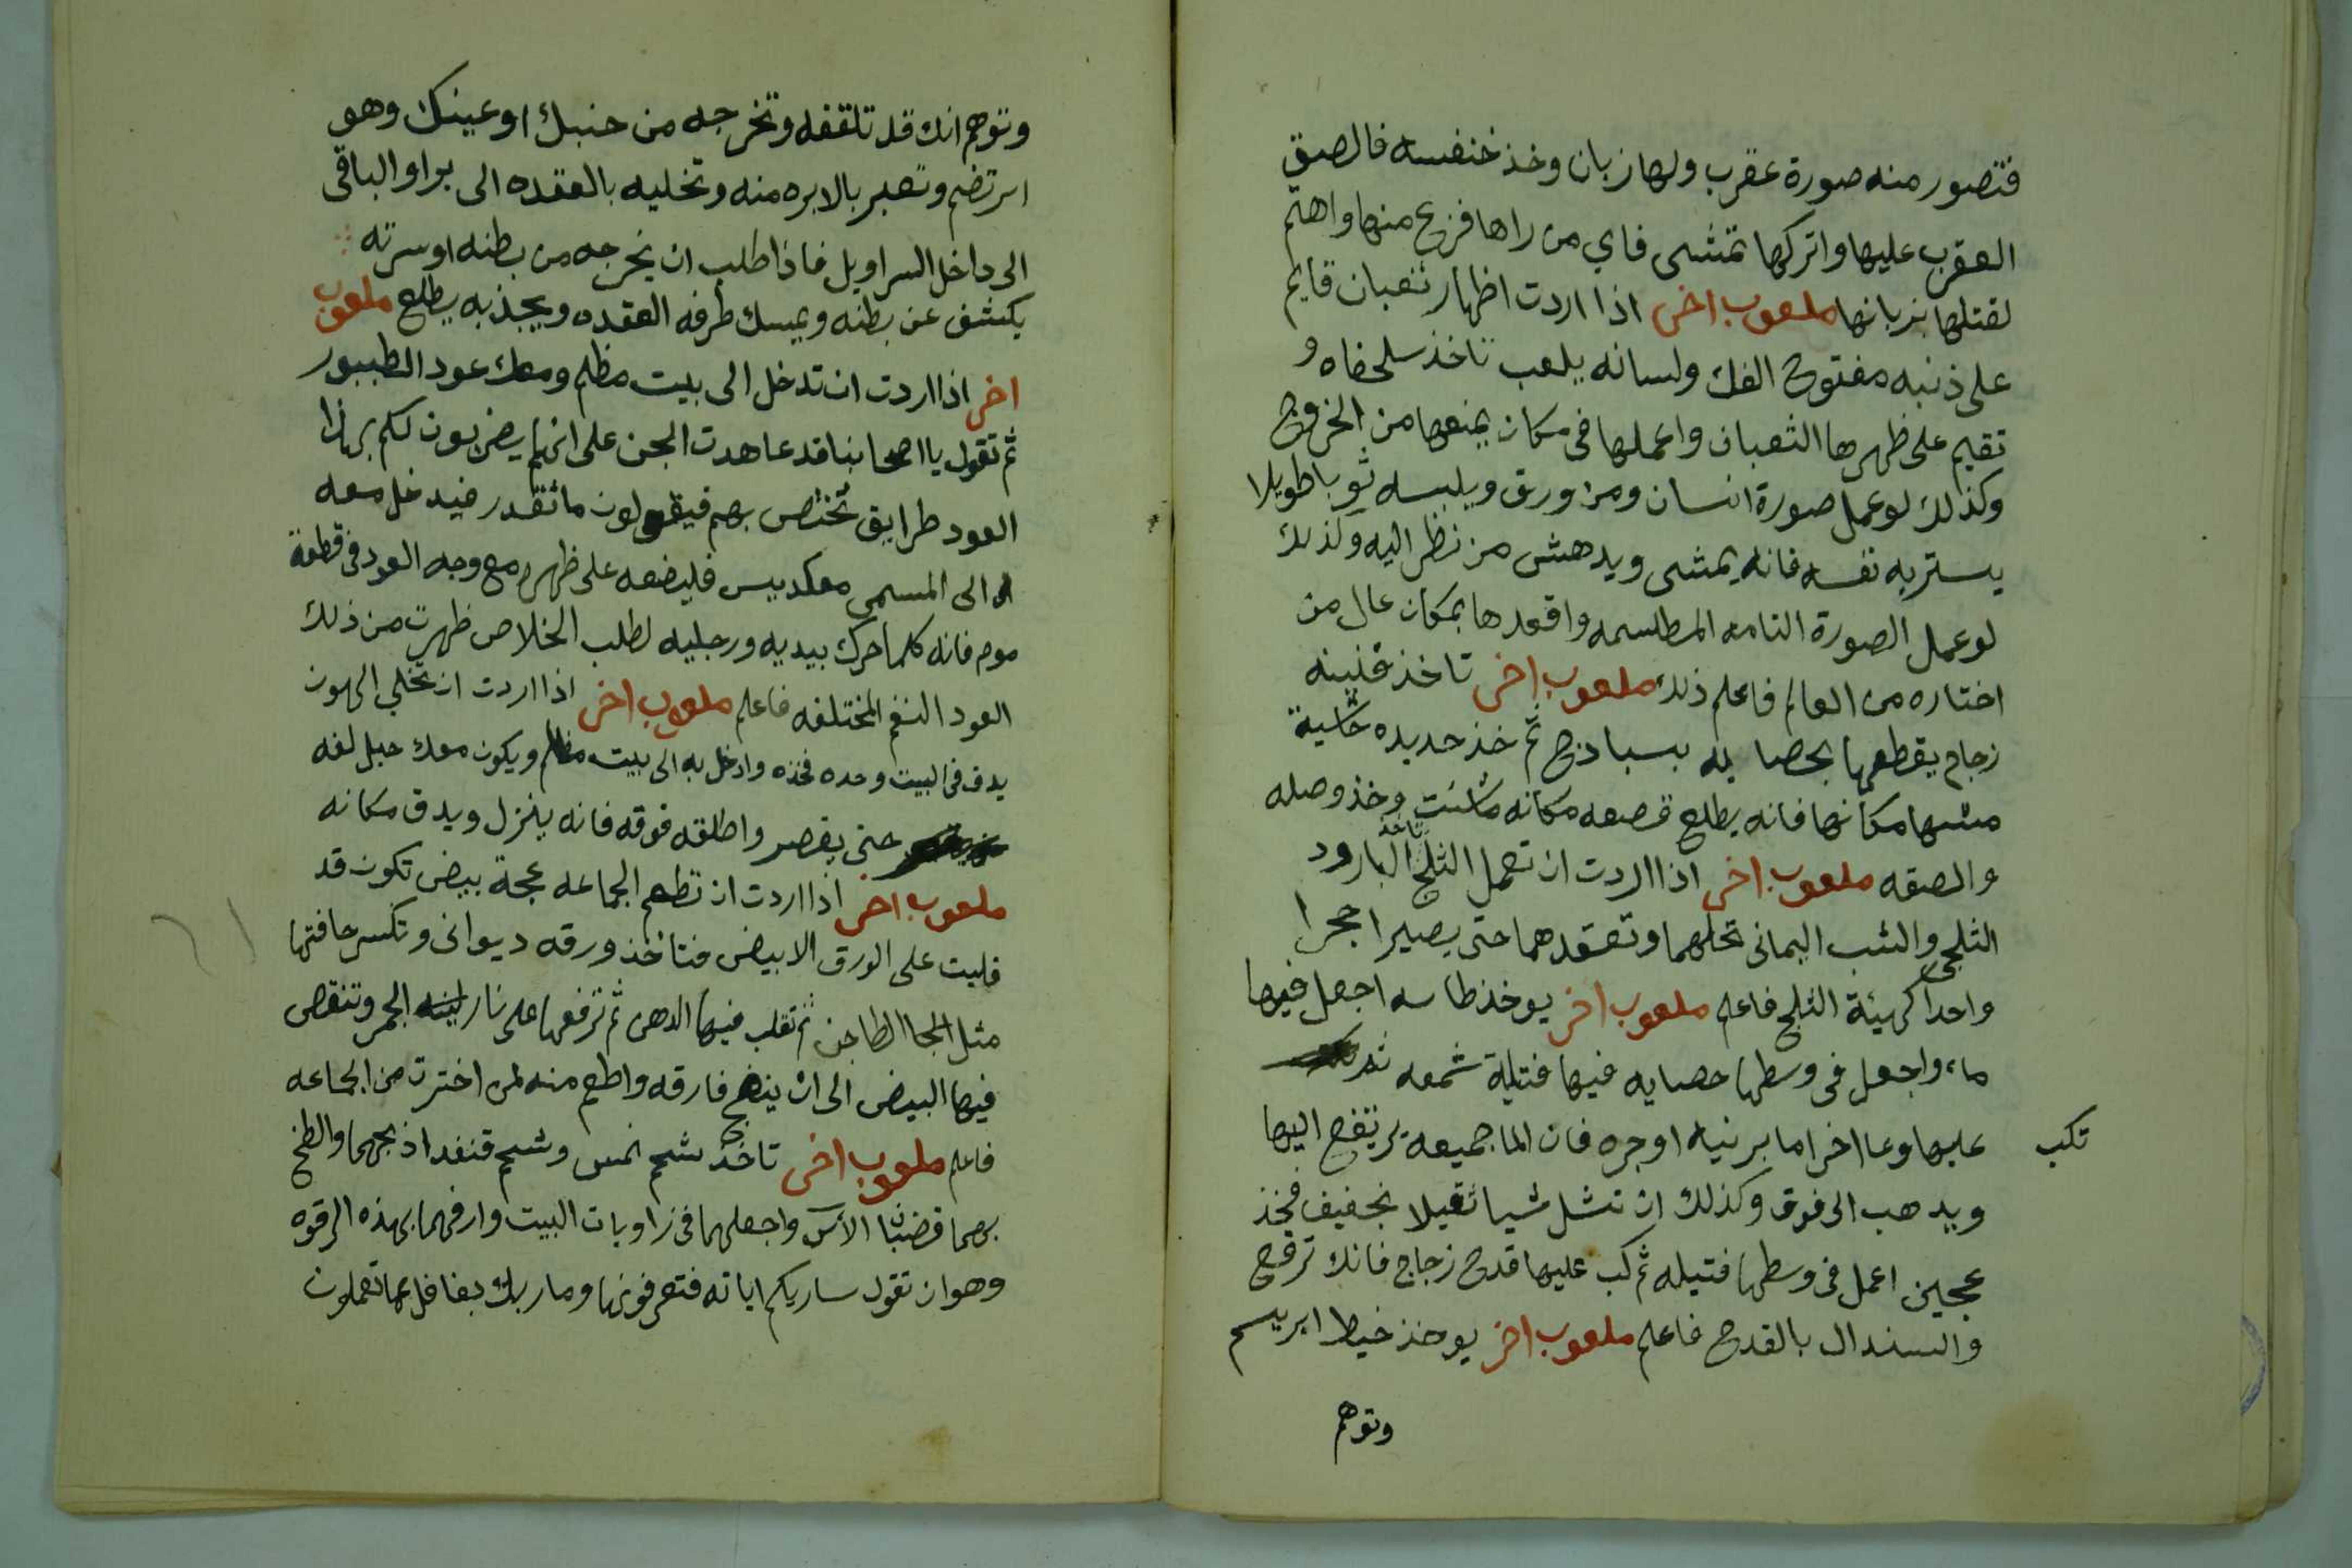 فتصور منه صورة عقرب ولها زبان وخذ خنفسه فالصق
العقرب عليها واتركها تمشى فاي من راها فزع منها واهتم
لقتلها بزبانها ملعوب اخر اذا اردت اظهار ثعبان قايم
على ذنبه مفتوح الفك ولسانه يلعب تاخذ سلحفاه و
تقيم على ظهرها الثعبان واعملها فى مكان يمنعها من الخروج
وكذلك لو عمل صورة انسان ومن ورق ويلبسه ثوبا طويلا
يستر به نفسه فانه يمشى ويدهش من نظر اليه وكذلك
لو عمل الصورة التامه المطلسمه واقعدها بمكان عال من
اختاره من العالم فاعلم ذلك ملعوب اخر تاخذ قنينه
زجاج يقطعها بحصا به بسباذج ثم خذ حديده خاشية
مشيها مكانها فانه يطلع قصعه مكانه ماشئت وخذ وصله
والصقه ملعوب اخر اذا اردت ان تعمل الثلج تاخذ البارود
الثلجى والشب اليمانى تحلهما وتعقدهما حتى يصيرا حجرا
واحدا كهيئة الثلج فاعلم ملعوب اخر يوخذ طاسه اجعل فيها
ماء واجعل فى وسطها حصايه فيها فتيلة شمعه ثم
تكب
عليها وعا اخر اما برنيه او جره فان الما جميعه يرتفع اليها
ويدهب الى فوق وكذلك ان تشل شيا ثقيلا بخفيف فخذ
عجين اعمل فى وسطها فتيله ثم كب عليها قدح زجاج فانك ترفع
والسندال بالقدح فاعلم ملعوب اخر يوخذ خيط ابريسم
وتوهم
وتوهم انك قد تلقفه وتخرجه من جنبك او عينك وهو
ابر تضم وتعبر بالابره منه وتخليه بالعقده الى برا والباقى
الى داخل السراويل فاذا طلب ان يخرجه من بطنه او سرته
يكشف عن بطنه ويمسك طرفه العقده ويجذبه يطلع ملعوب
اخر اذا اردت ان تدخل الى بيت مظلم ومعك عود الطببور
ثم تقول يا اصحابنا قد عاهدت الجن على انهم يضربون لكم بهاذا
العود طرايق تختص بهم فيقولون ما تقدر فيدخل معه
الى المسمى معكدبيس فليضعه على ظهره مع وجه العود فى قطعة
موم فانه كلما حرك بيديه ورجليه لطلب الخلاص ظهرت من ذلك
العود النغم المختلفه فاعلم ملعوب اخر اذا اردت ان تخلي الهون
يدق فى البيت وحده فخذه وادخل به الى بيت مظلم ويكون معك حبل لفه
حتى يقصر واطلقه فوقه فانه ينزل ويدق مكانه
ملعوب اخر اذا اردت ان تطعم الجماعه عجة بيض تكون قد
قليت على الورق الابيض فتاخذ ورقه ديوانى وتكسر حافتها
مثل الجا الطاجن ثم تقلب فيها الدهن ثم ترفعها على نار لينه الجمر وتنقص
فيها البيض الى ان ينضج فارقه واطعم منه لمن اخترت من الجماعه
فاعلم ملعوب اخر تاخذ شحم نمس وشحم قنفد اذبحهما والطخ
بهما قضبنان الاس واجعلهما فى زاويات البيت وارفهما بهذه الرقوه
وهو ان تقول ساريكم اياته فتعرفونها وما ربك بغافل عما تعملون